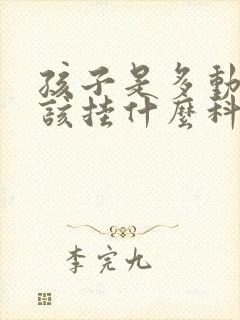 孩子是多動
該掛什麼科
李完九